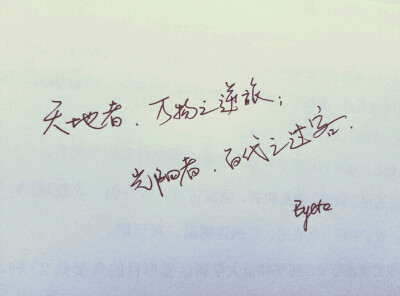 天地者，万物之逆旅；
光阴者，百代之过客．